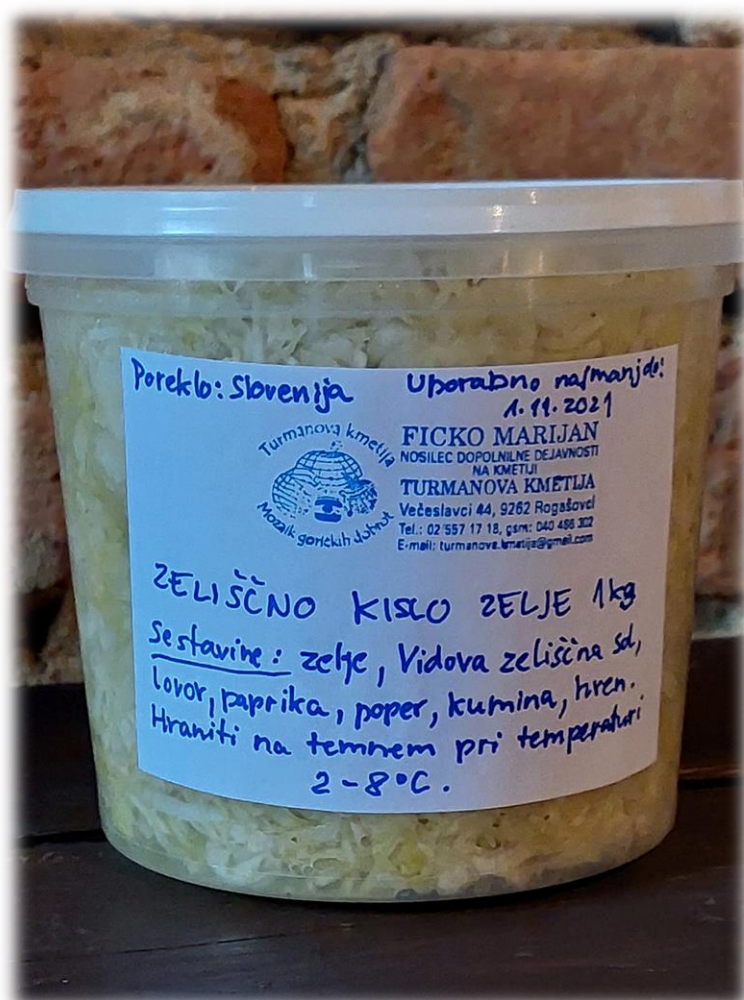 Poreklo: Slovenija
Uporabno najmanj do:
1.11.2021
Turmanova kmetija
Mozaik goričkih dobrot
FICKO MARIJAN
NOSILEC DOPOLNILNE DEJAVNOSTI
NA KMETIJI
TURMANOVA KMETIJA
Večeslavci 44, 9262 Rogašovci
Tel.: 02 557 17 18, gsm:
E-mail: turmanova.kmetija@gmail.com
ZELIŠČNO KISLO ZELJE 1kg
Sestavine: zelje, Vidova zeliščna sol,
lovor, paprika, poper, kumina, hren.
Hraniti na temnem pri temperaturi
2-8°C.